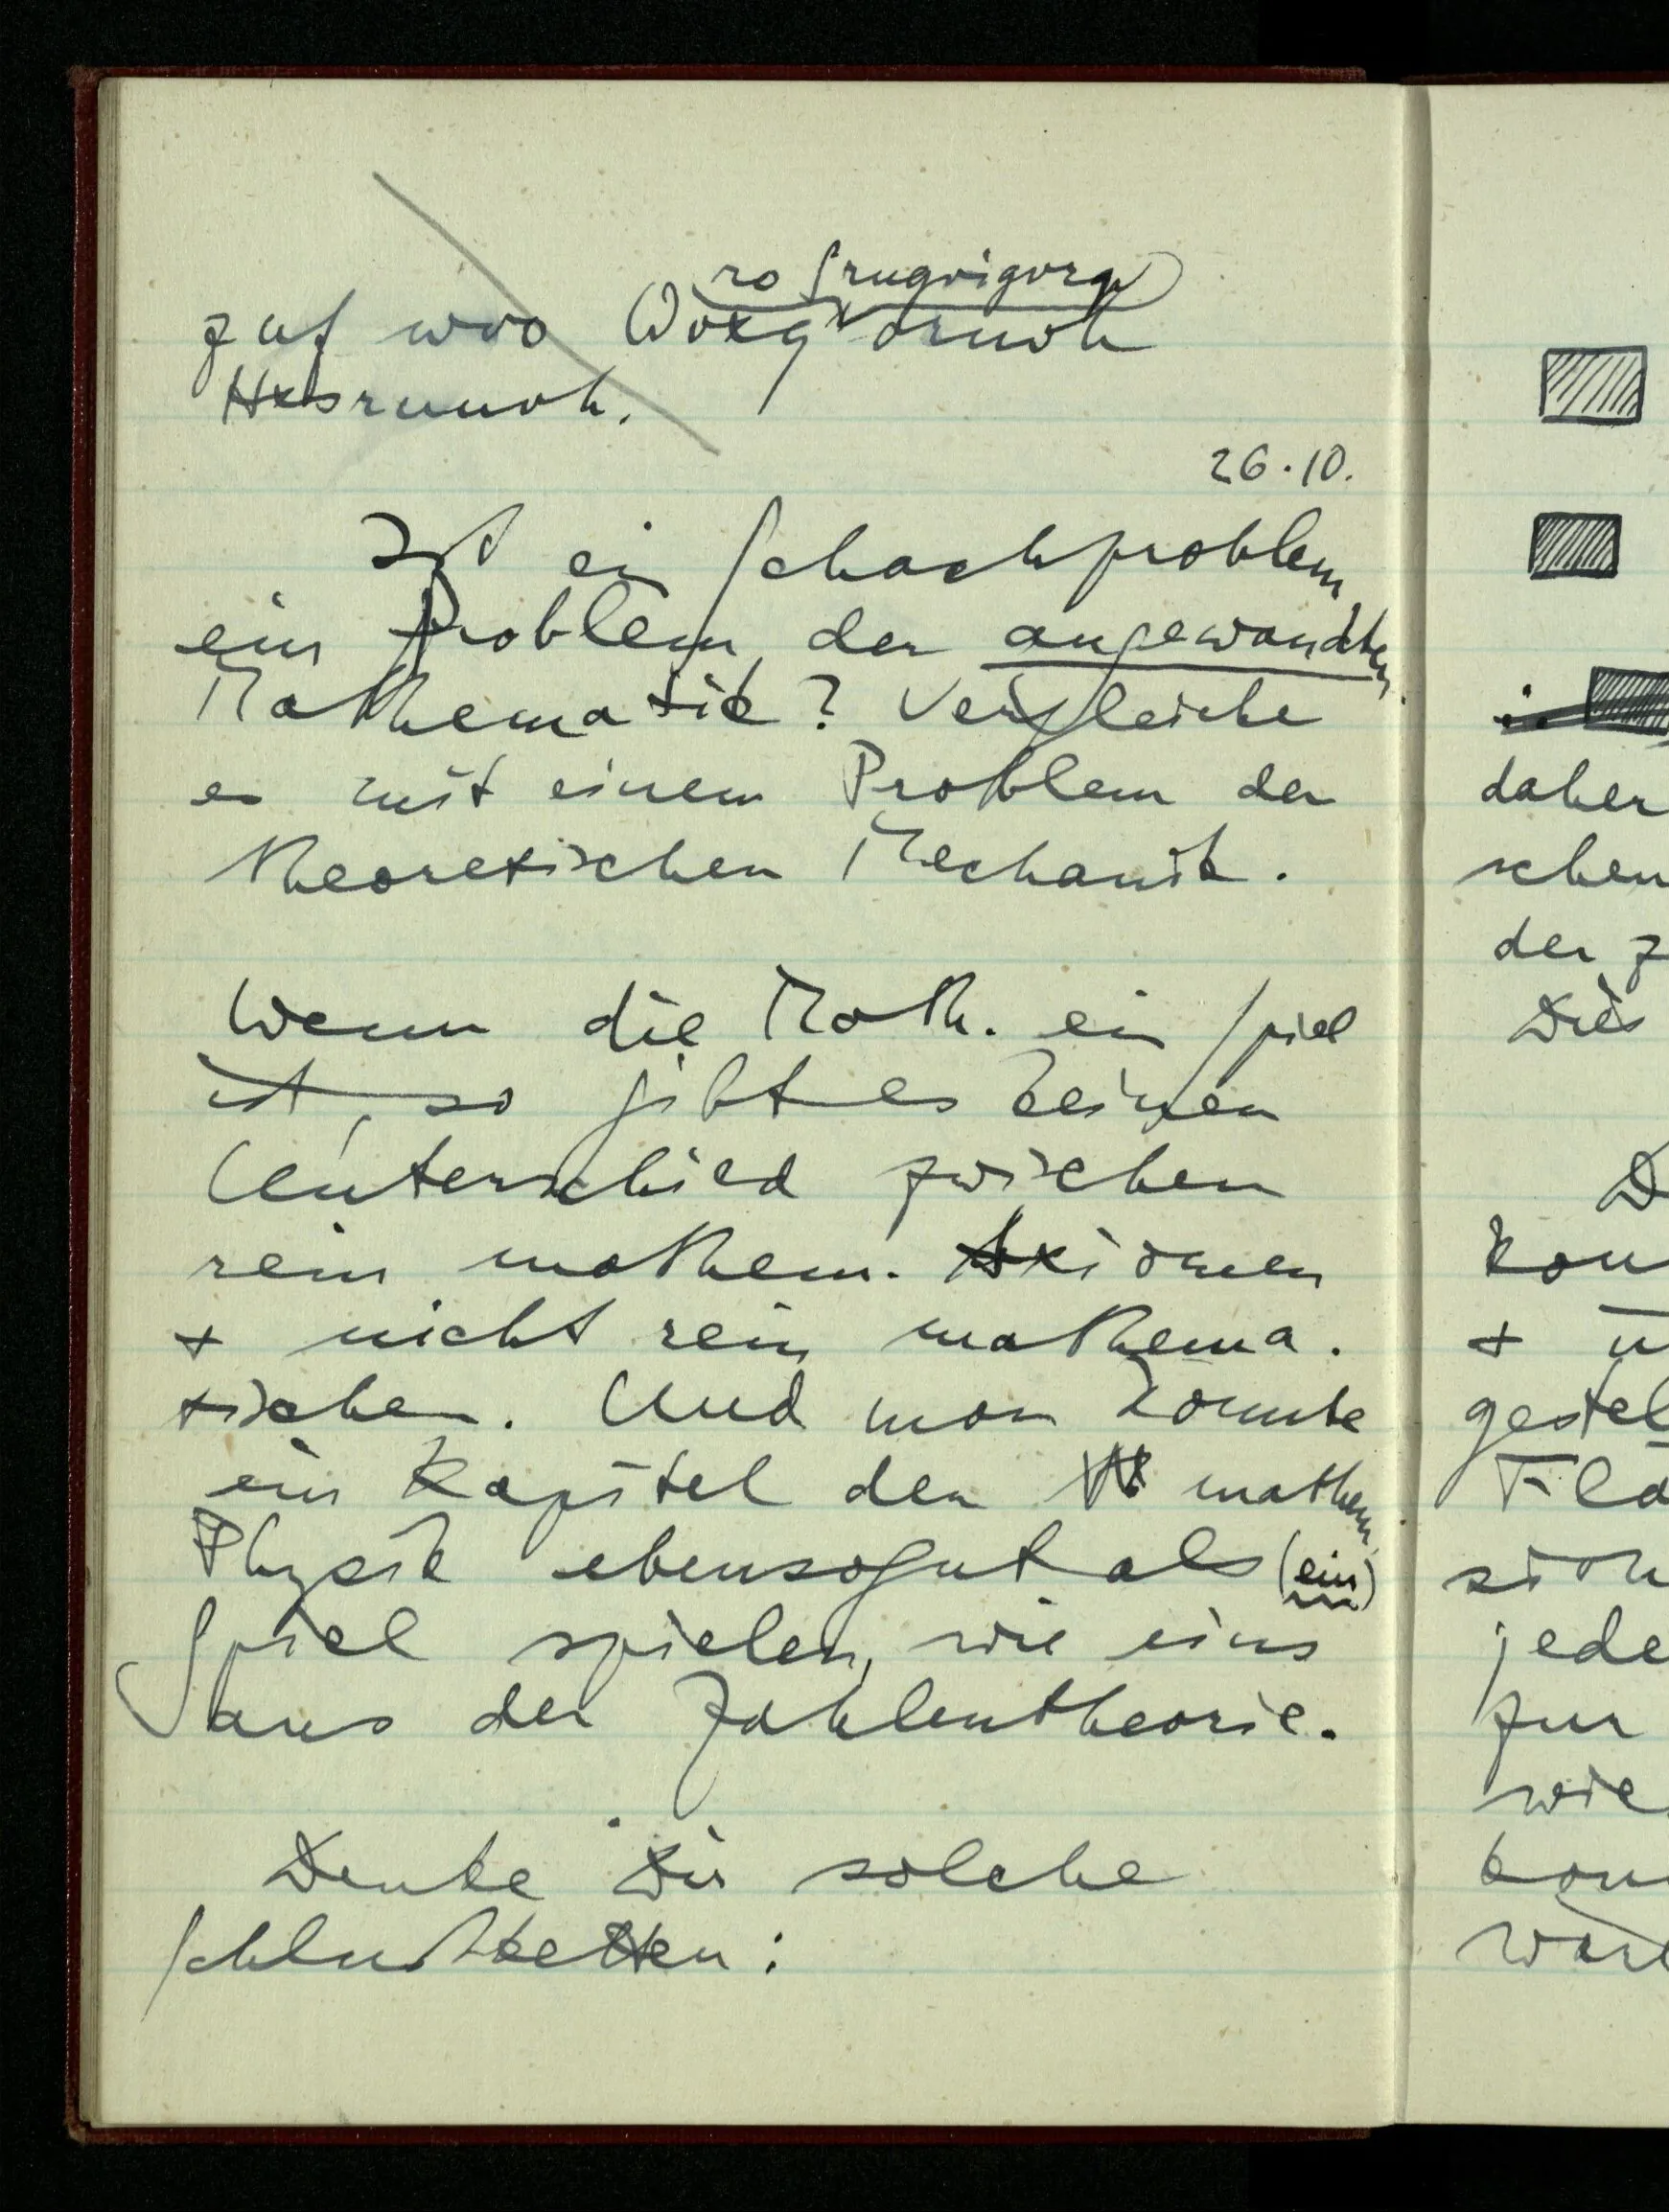 26.10.
Ist ein Schachproblem
ein Problem der angewandten
Mathematik? Vergleiche
es mit einem Problem der
theoretischen Mechanik.
Wenn die Math. ein Spiel
ist, so gibt es keinen
Unterschied zwischen
rein mathem. Axiomen
+ nicht rein mathema-
tischen. Und man könnte
ein Kapitel der mathem.
Physik ebensogut als (ein)
Spiel spielen, wie eins
aus der Zahlentheorie.
Denke Dir solche
Schlußketten:
daher
schen
der z
Dies
D
kon
+
gestel
sich
jede
zur
wie